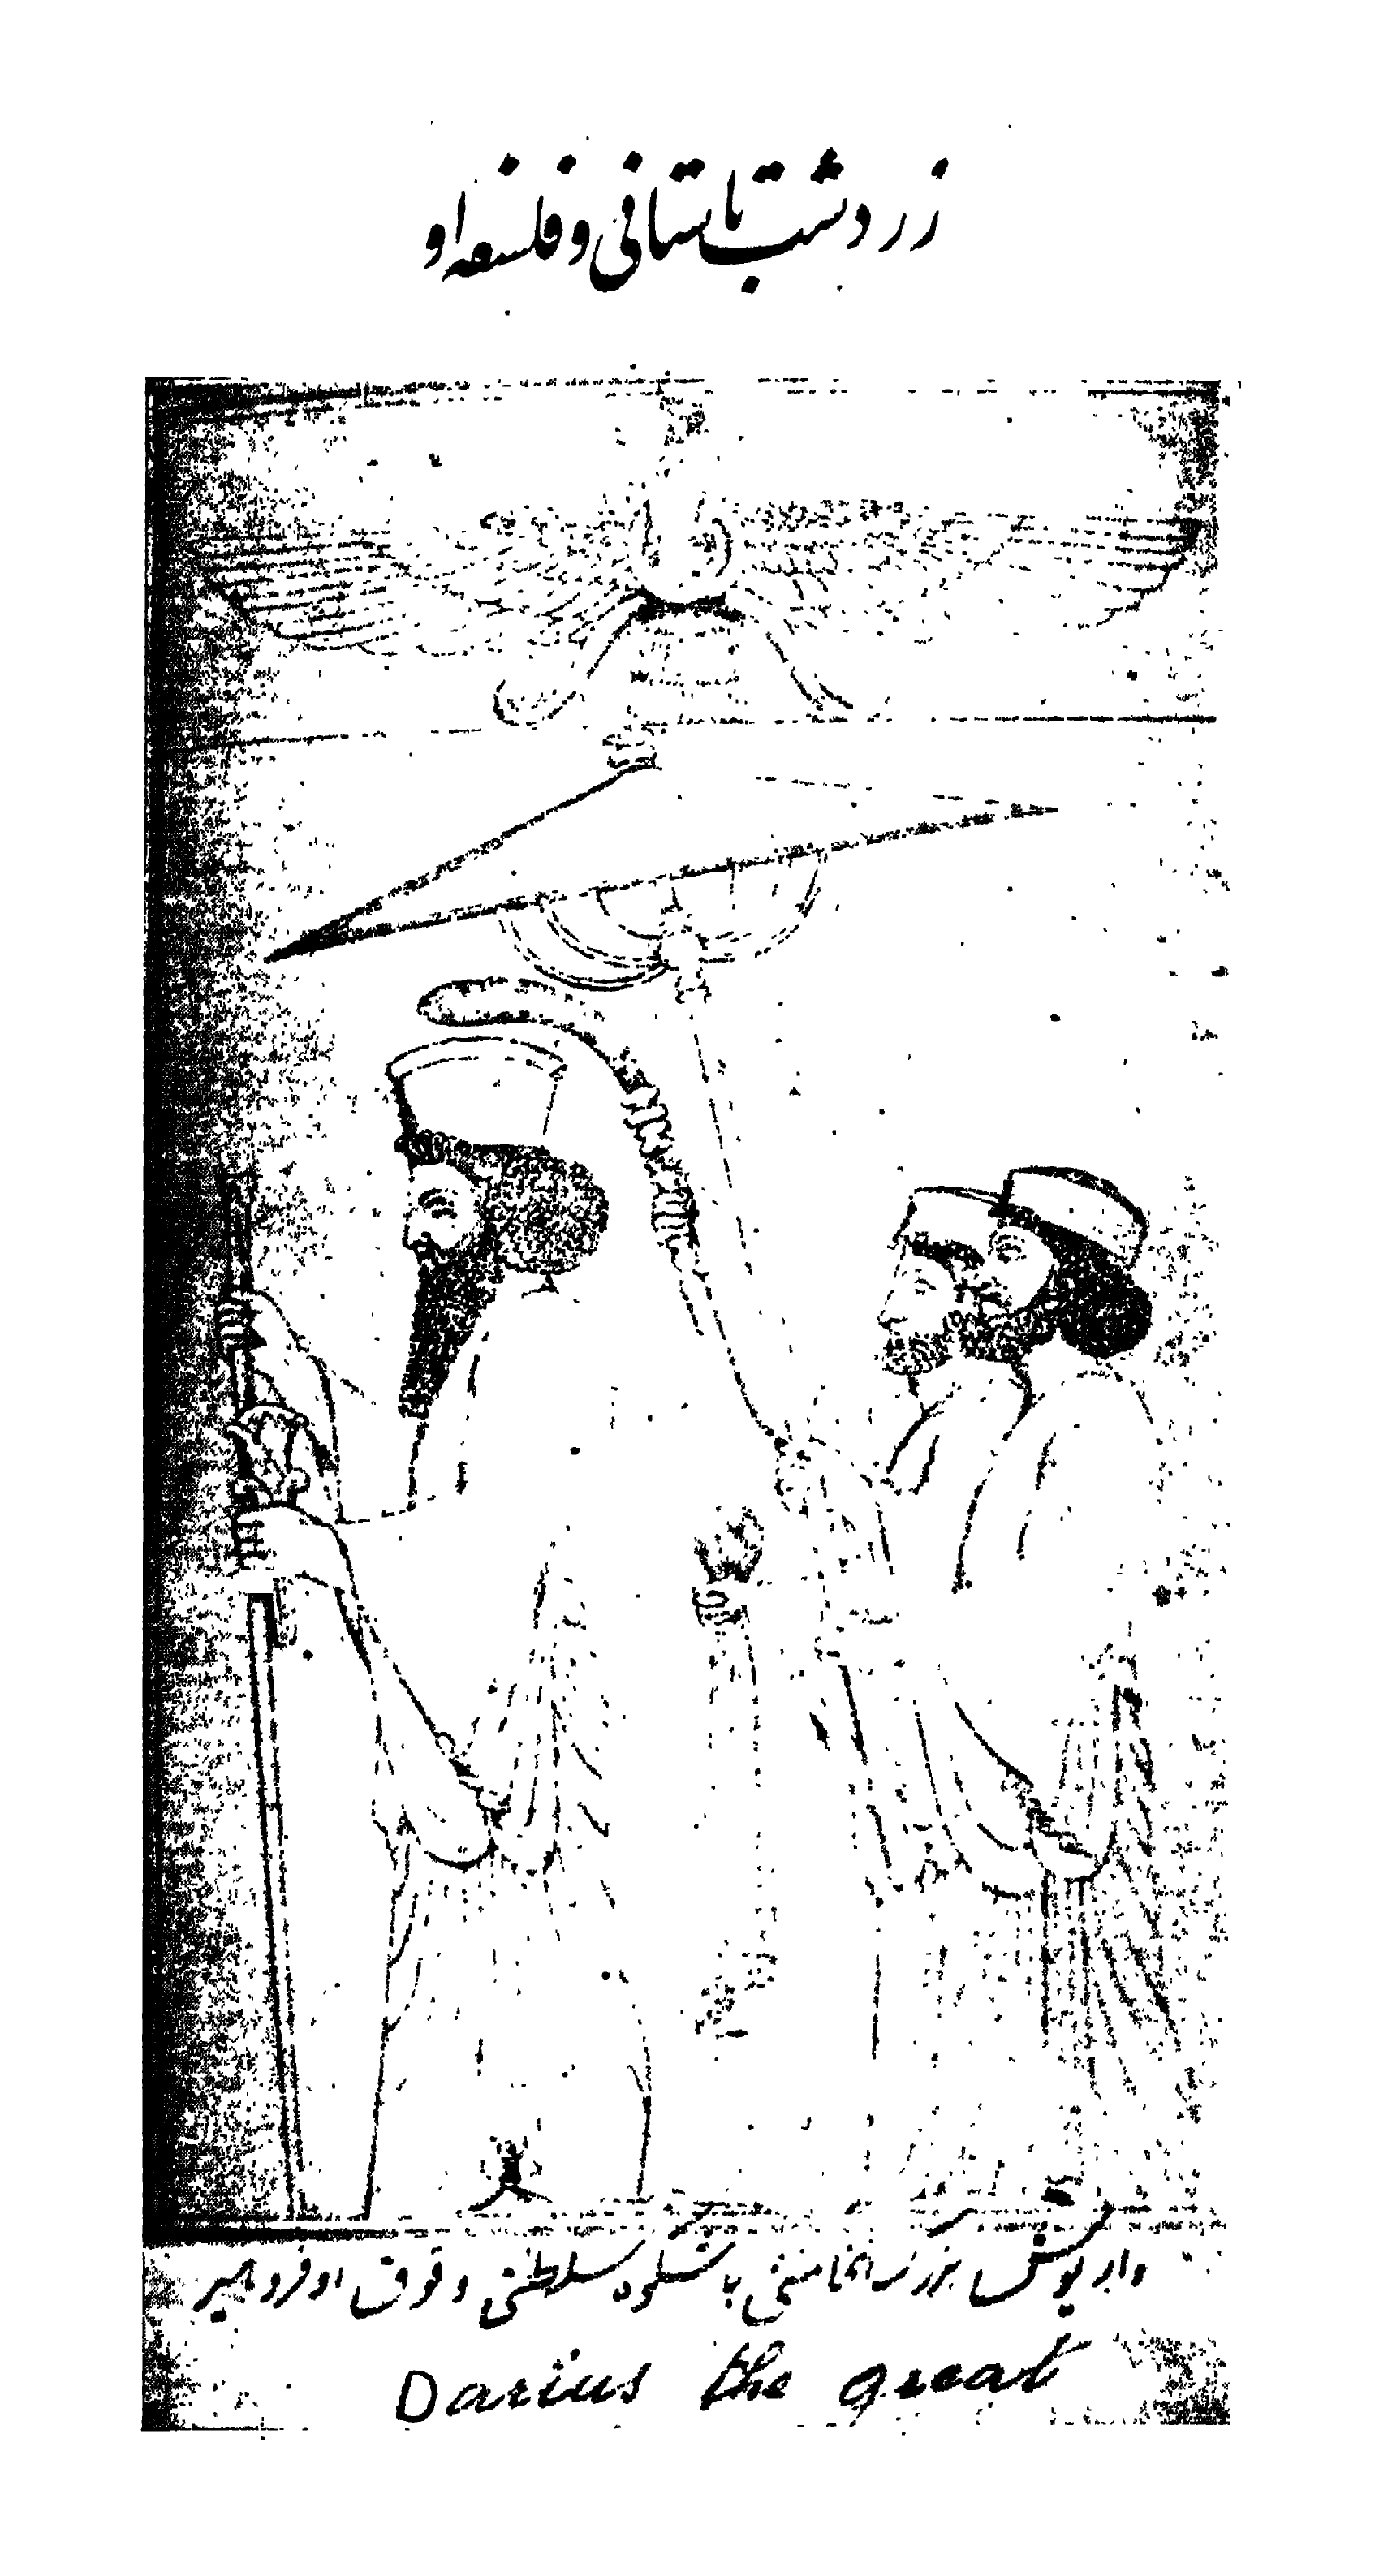 زردشت باستانی و فلسفه او
داریوش بزرگ هخامنشی با شکوه سلطنتی و فوق او فروهر
Darius the great